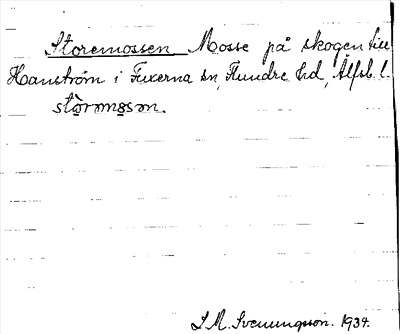 Storemossen Mosse på skogen till
Hanström i Fuxerna sn, Flundre hd, Älfsb. l.
stòrǝmǝsǝn.
S. M. Svenungsson. 1934.